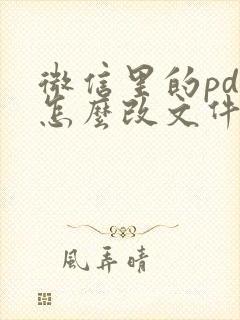 微信里的pd
怎麼改文件
風弄晴